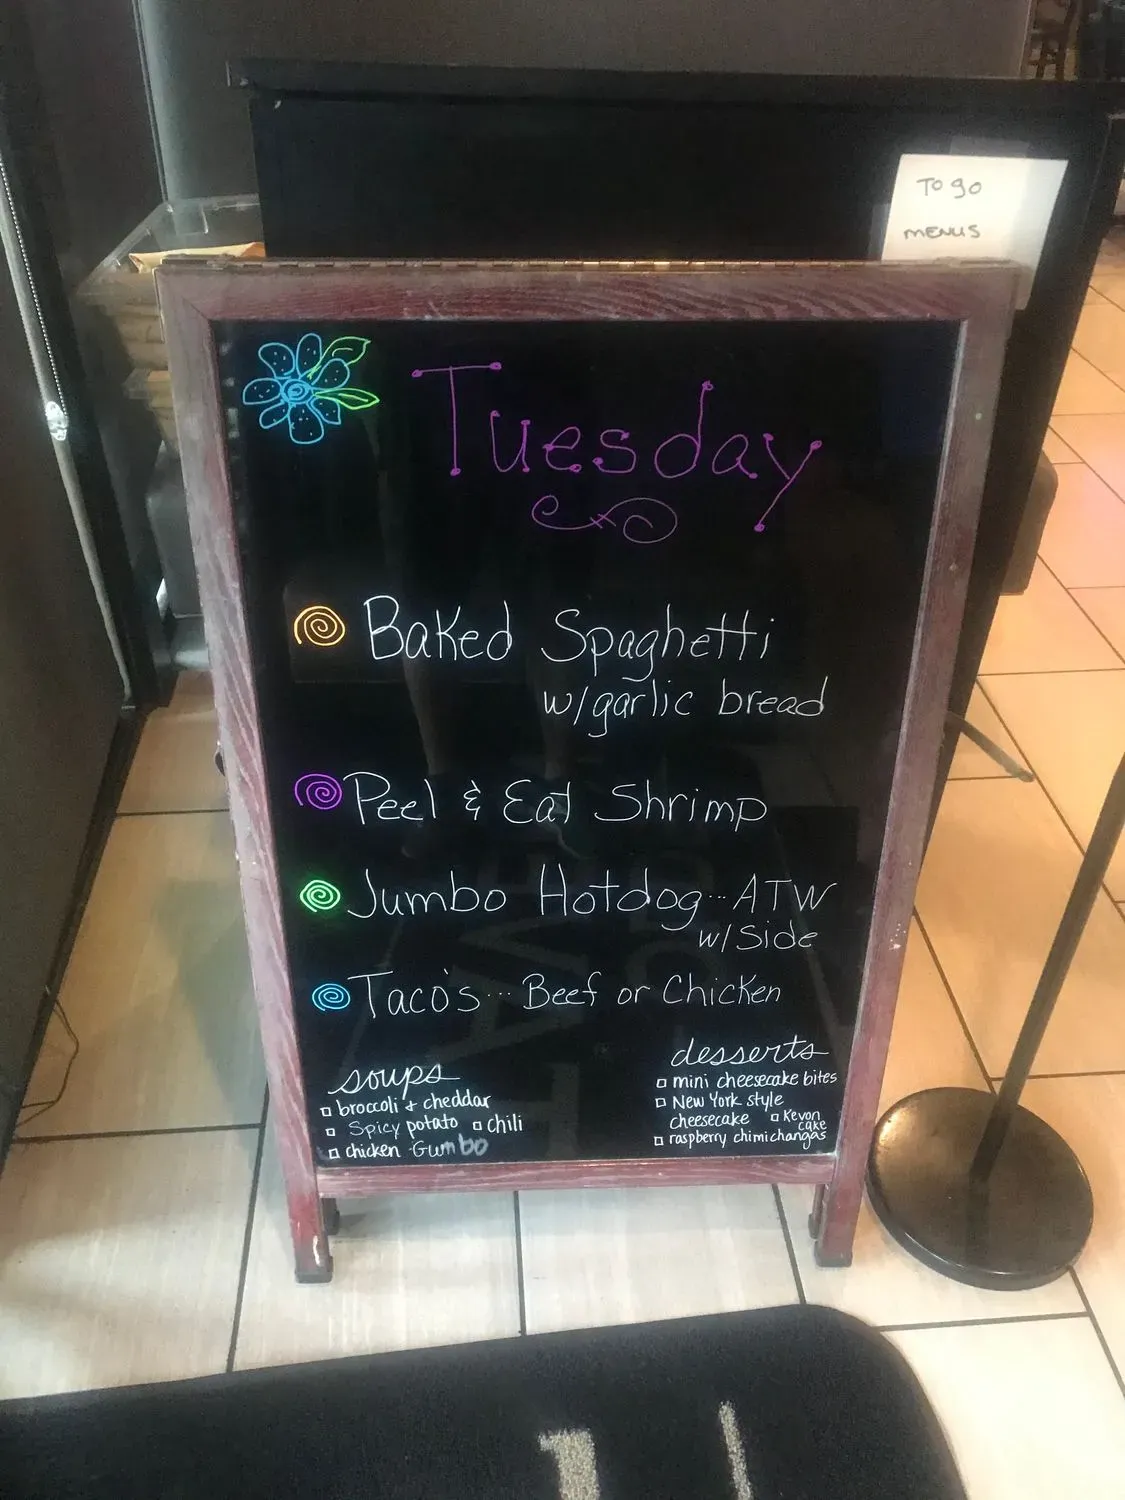 To go
MENUS
Tuesday
Baked Spaghetti
w/garlic bread
Peel & Eat Shrimp
Jumbo Hotdog...ATW
w/Side
Taco's... Beef or Chicken
soups
broccoli + cheddar
Spicy potato
chili
chicken Gumbo
desserts
mini cheesecake bites
New York style
cheesecake
Kevon
cake
raspberry chimichangas